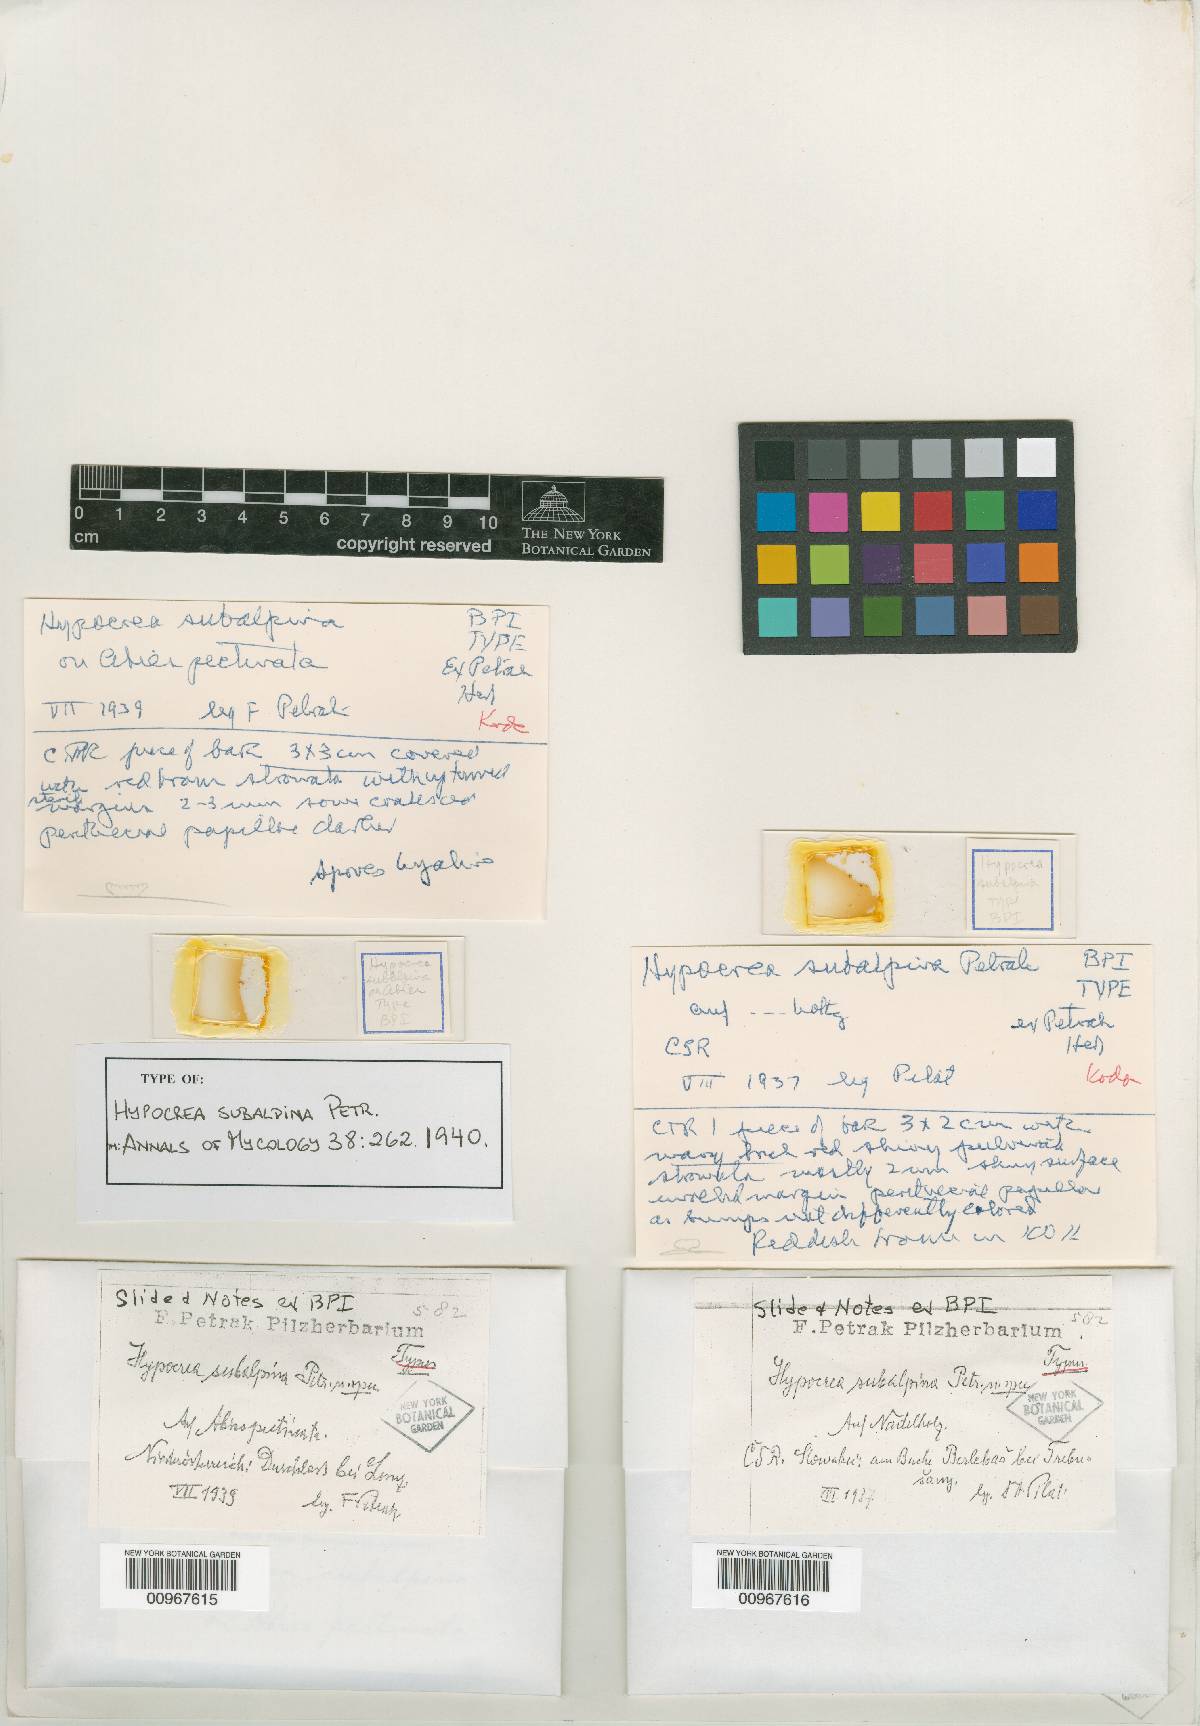 0 1 2 3 4 5 6 7 8 9 10
cm
copyright reserved
THE NEW YORK
BOTANICAL GARDEN
Hypocrea subalpina
on Abies pectinata
VII 1939 leg F Petrak
BPI
TYPE
Ex Petrak
Herb
Kodk
piece of bark 3x3cm covered
with red brown stromata with upturned
sterile margins 2-3 mm some coalesced
perithecial papillae darker
spores hyalin
Hypocrea
subalpina
on Abies
Type
BPI
TYPE OF:
HYPOCREA SUBALPINA PETR.
IN: ANNALS OF MYCOLOGY 38:262. 1940.
Slide & Notes ex BPI
582
F. Petrak Pilzherbarium
Typus
Hypocrea subalpina Petr. n. spec.
NEW YORK
BOTANICAL
GARDEN
Auf Abies pectinata.
Niederösterreich: bei
VII 1939 leg. F. Petrak
NEW YORK BOTANICAL GARDEN
00967615
Hypocrea
subalpina
Type
BPI
Hypocrea subalpina Petrak
auf --- holtz
CSR
VIII 1937 leg Pilát
BPI
TYPE
ex Petrak
Herb
1 piece of bark 3x2cm with
many brick red shiny pulvinate
stromata mostly 2mm shiny surface
margin perithecial papillae
as bumps not differently colored
Reddish brown in KOH
Slide & Notes ex BPI
582
F. Petrak Pilzherbarium
Typus
Hypocrea subalpina Petr. n. spec.
NEW YORK
BOTANICAL
GARDEN
Auf Nadelholz.
ČSR. Slowakei: am Berlebaš bei Trebušany.
1937 leg. Pilát
NEW YORK BOTANICAL GARDEN
00967616